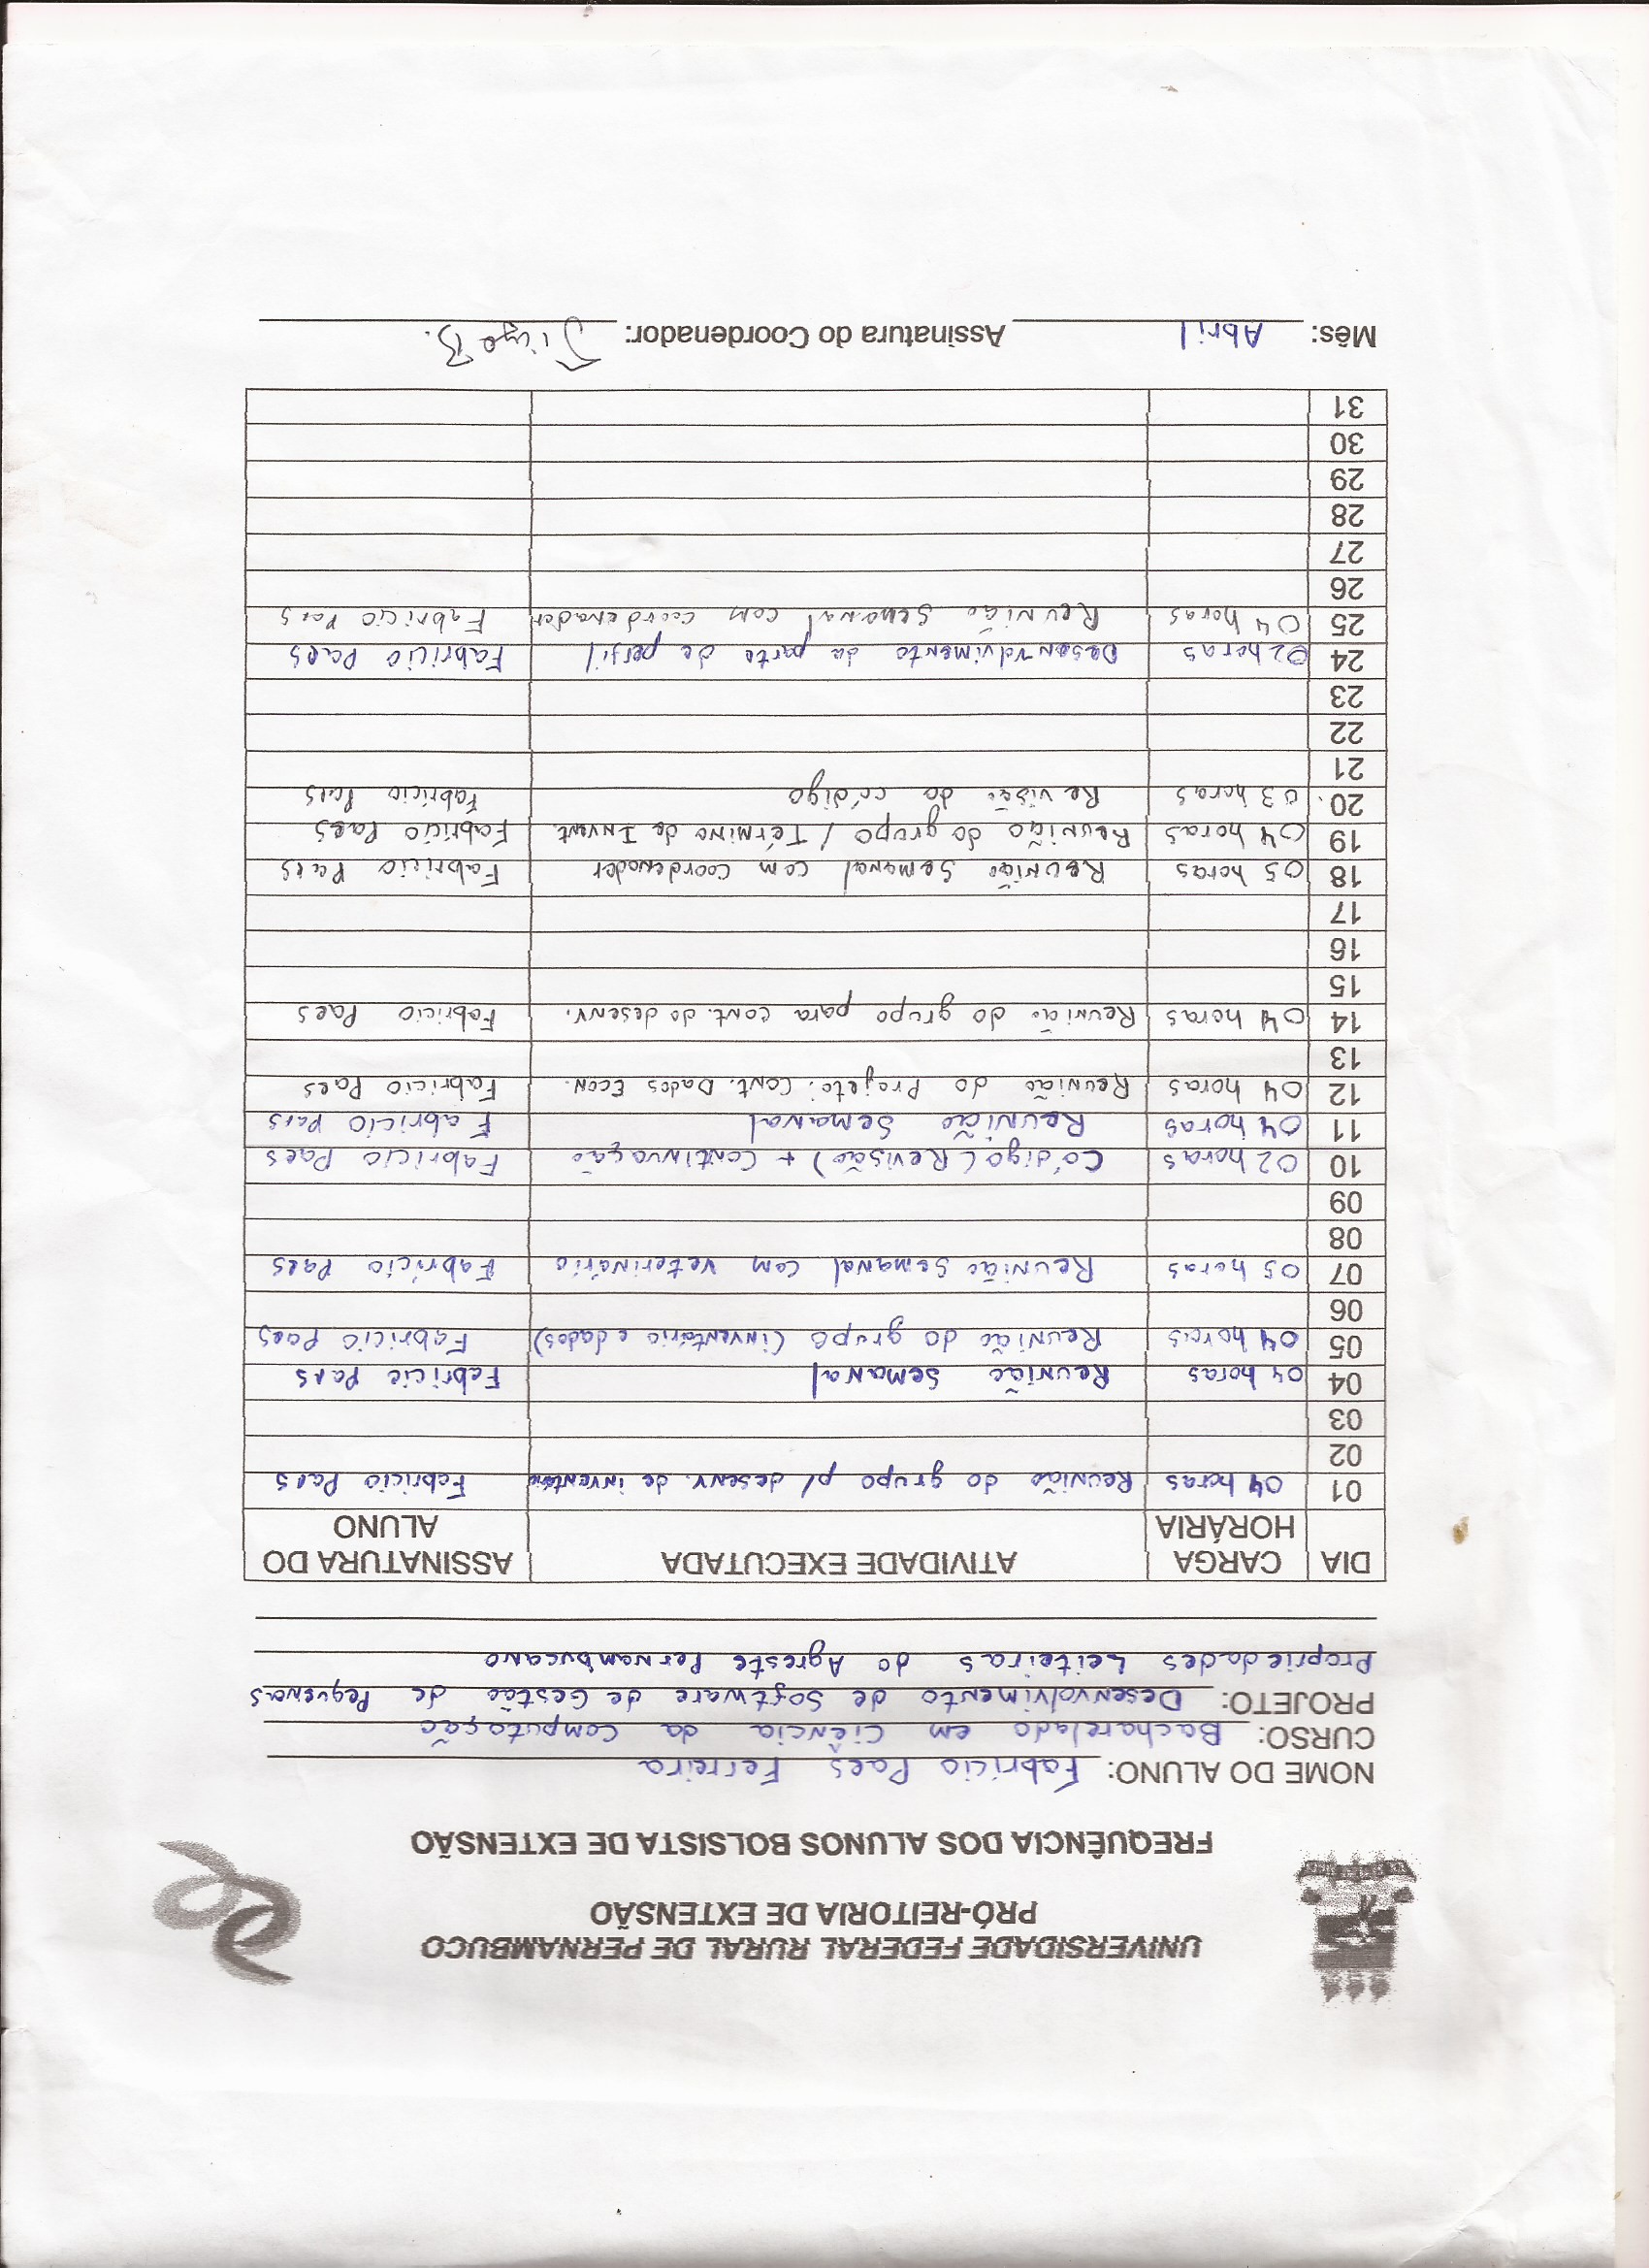 UNIVERSIDADE FEDERAL RURAL DE PERNAMBUCO
PRÓ-REITORIA DE EXTENSÃO
FREQUÊNCIA DOS ALUNOS BOLSISTA DE EXTENSÃO
NOME DO ALUNO: Fabrício Paes Ferreira
CURSO: Bacharelado em Ciência da Computação
PROJETO: Desenvolvimento de Software de Gestão de Pequenas
Propriedades Leiteiras do Agreste Pernambucano
DIA CARGA HORÁRIA ATIVIDADE EXECUTADA ASSINATURA DO ALUNO
01 04 horas Reunião do grupo p/ desenv. de inventário Fabricio Paes
02
03
04 04 horas Reunião Semanal Fabricio Paes
05 04 horas Reunião do grupo (inventário e dados) Fabricio Paes
06
07 05 horas Reunião Semanal com veterinário Fabrício Paes
08
09
10 02 horas Código (Revisão) + Continuação Fabricio Paes
11 04 horas Reunião Semanal Fabricio Paes
12 04 horas Reunião do Projeto: Cont. Dados Econ. Fabricio Paes
13
14 04 horas Reunião do grupo para cont. do desenv. Fabricio Paes
15
16
17
18 05 horas Reunião Semanal com Coordenador Fabricio Paes
19 04 horas Reunião do grupo / Término de Invent. Fabrício Paes
20. 03 horas Revisão do código Fabrício Paes
21
22
23
24 02 horas Desenvolvimento da parte de perfil Fabricio Paes
25 04 horas Reunião Semanal com Coordenador Fabricio Paes
26
27
28
29
30
31
Mês: Abril Assinatura do Coordenador: B.